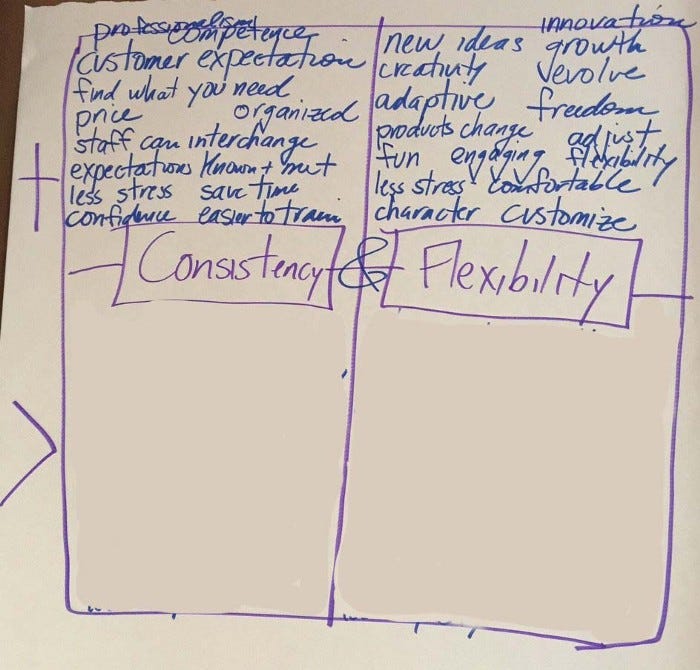 professionalism
competence
customer expectation
find what you need
price organized
staff can interchange
expectations known + met
less stress save time
confidence easier to train
innovation
new ideas growth
creativity evolve
adaptive freedom
products change adjust
fun engaging flexibility
less stress comfortable
character customize
+
Consistency & Flexibility